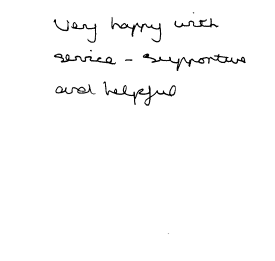 Very happy with
service - supportive
and helpful